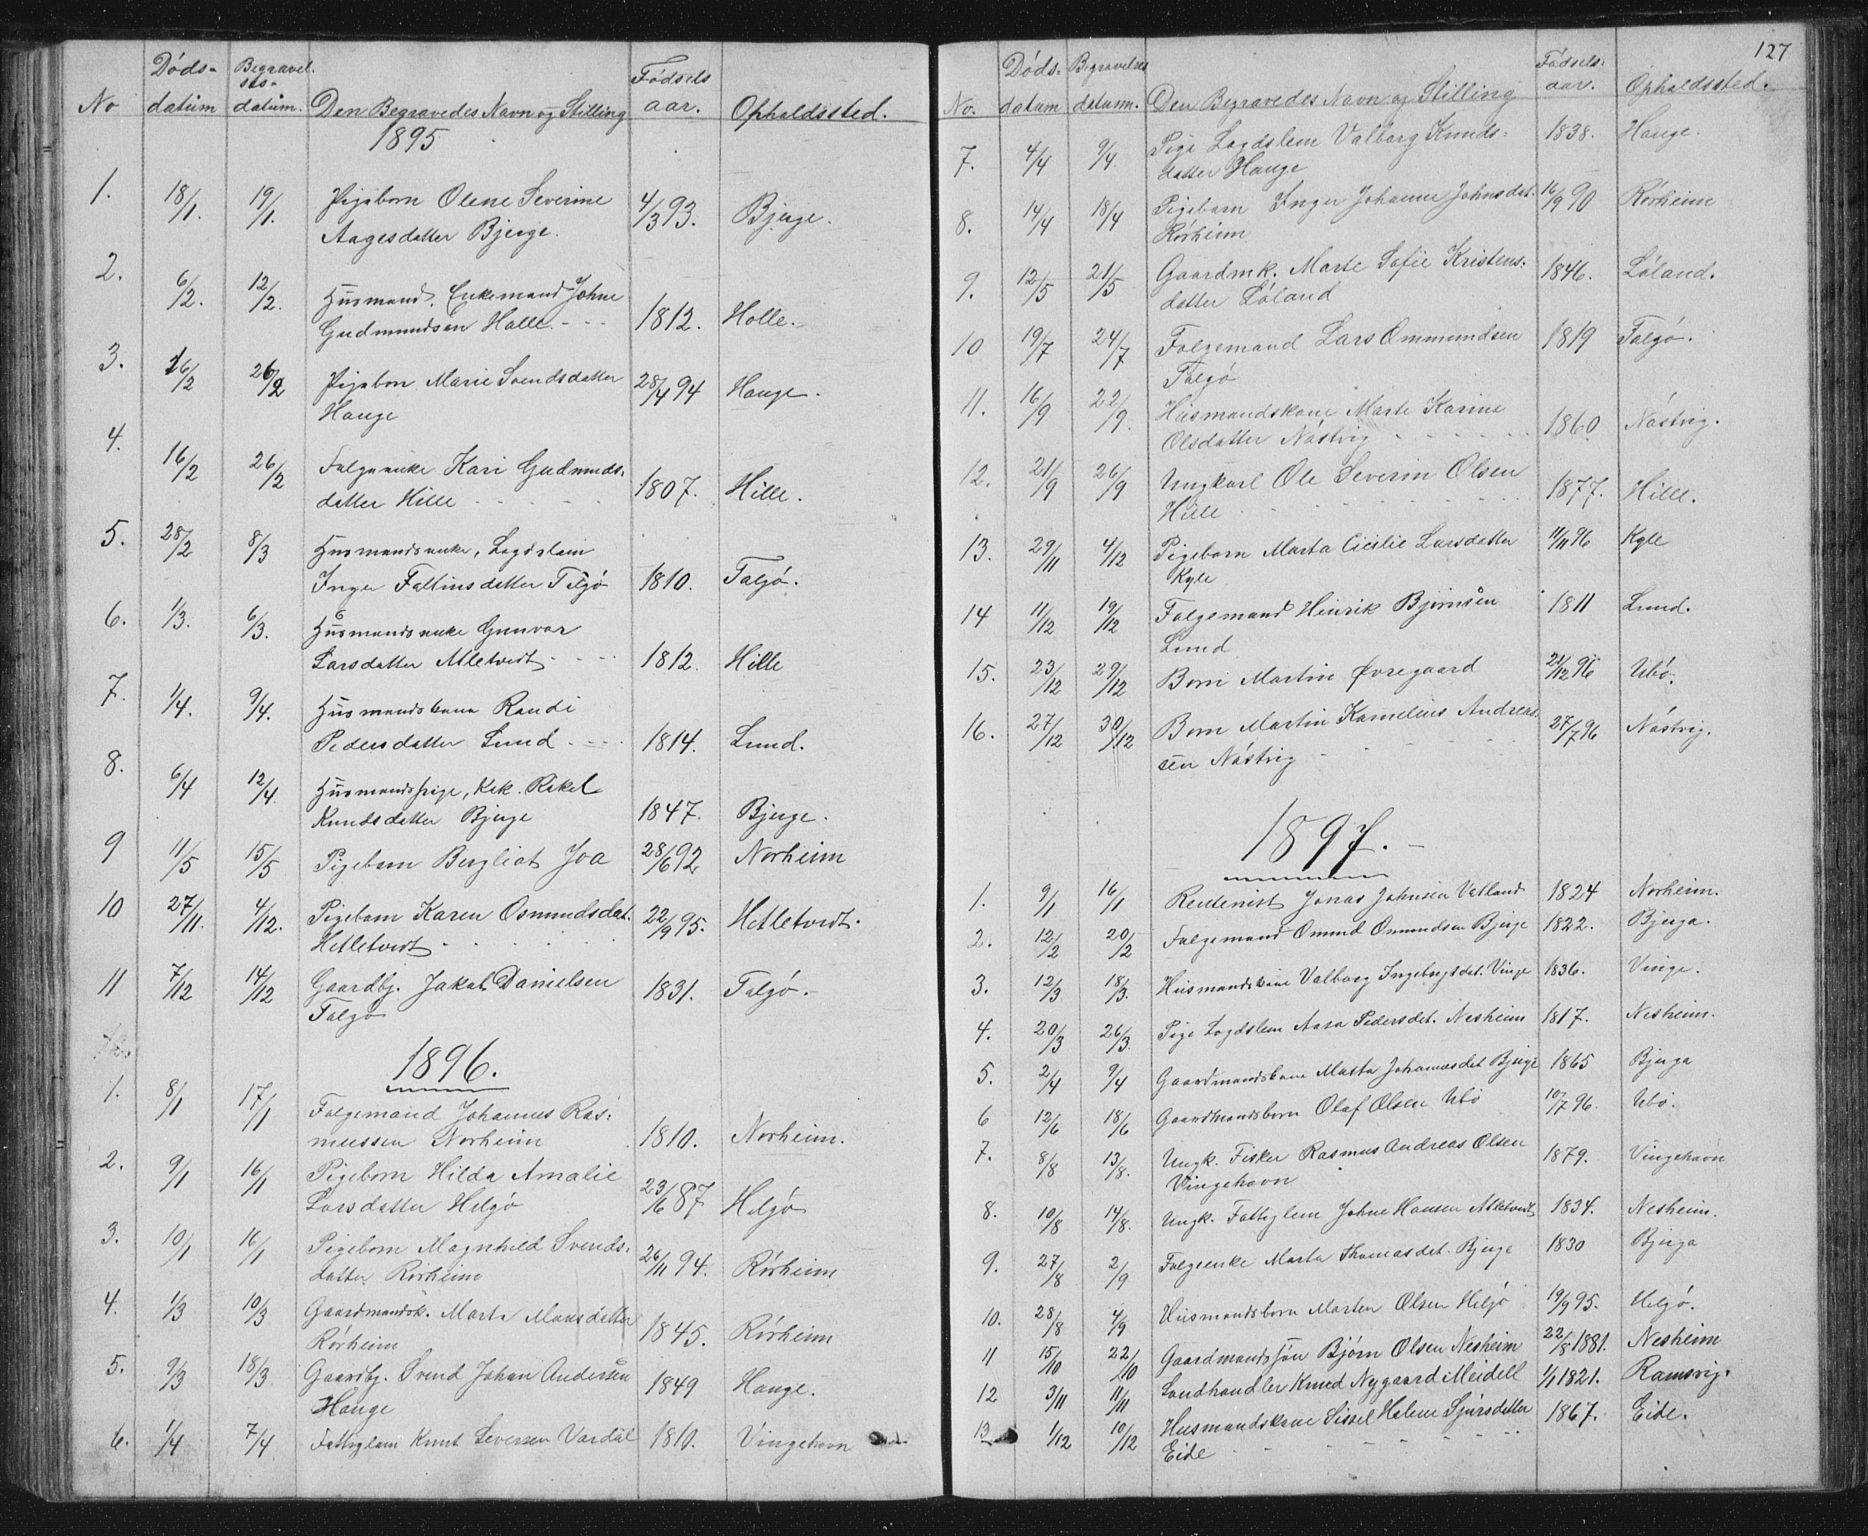 No Dødsdatum Begravelsesdatum. Den Begravedes Navn og Stilling Fødselsaar. Opholdssted.
1895
1. 18/1. 19/1. Pigebarn Olene Severine 4/3 93. Bjerge.
Aagesdatter Bjerge.
2. 6/2. 12/2. Husmand. Enkemand Johne
Gudmundsen Halle. 1812. Halle.
3. 16/2 26/2 Pigebrn Marie Svendsdatter 28/4 94 Hauge.
Hauge
4. 16/2 26/2 Folgeenke Kari Gudmunds-
datter Hille 1807. Hille.
5. 28/2 8/3 Husmandsenke, Legdslem
Inger Faltinsdatter Talgø 1810. Talgø.
6. 1/3. 6/3. Husmandsenke Gunvor
Larsdatter Atletveit 1812. Hille
7. 1/4. 9/4. Husmandskone Randi
Pedersdatter Lund 1814. Lund.
8. 6/4 12/4. Husmandspige, Kek. Rakel
Knudsdatter Bjerge 1847. Bjerge.
9 11/5 15/5 Pigebarn Bergliot Joa 28/6 92 Norheim
10 27/11. 4/12. Pigebarn Karen Osmundsdat. 22/9 95. Hetletvedt.
Hetletvedt
11 7/12 14/12 Gaardbr. Jakob Danielsen 1831. Talgø.
Talgø
1896.
1. 8/1 17/1 Folgemand Johannes Ras-
mussen Norheim 1810. Norheim.
2. 9/1 16/1 Pigebarn Hilda Amalie
Larsdatter Helgø 23/6 87 Helgø
3. 10/1 16/1 Pigebarn Magnhild Svends-
datter Rørheim 26/11 94. Rørheim
4. 1/3 10/3 Gaardmandsk. Marta Mansdatter
Rørheim 1845. Rørheim
5. 9/3 18/3 Gaardbr. Svend Johan Andersen 1849 Hauge.
Hauge
6. 1/4 7/4 Fattiglem Knut Seversen Vardal 1810. Vingehavn
127
No. Dødsdatum Begravelsesdatum. Den Begravedes Navn og Stilling Fødselsaar. Opholdssted.
7. 4/4 9/4. Pige Legdslem Valborg Knuds- 1838. Hauge.
datter Hauge
8. 14/4 18/4 Pigebarn Inger Johanne Johnsdat. 16/9 90 Rørheim
Rørheim
9. 12/5 21/5 Gaardmk. Marte Sofie Kristens- 1846. Løland.
datter Løland
10 19/7 24/7 Folgemand Lars Ommundsen 1819 Talgø.
Talgø
11. 16/9 22/9. Husmandskone Marte Karine
Olsdatter Nåstvig 1860. Nåstvig.
12. 21/9 26/9 Ungkarl Ole Severin Olsen
Hille 1877. Hille.
13. 29/11 4/12 Pigebarn Marta Cicilie Larsdatter 11/11 96 Kyle
Kyle
14 11/12 19/12 Folgemand Henrik Bjørnsen 1811 Lund.
Lund
15. 23/12 29/12 Barn Martin Øvregaard 21/12 96 Ubø.
16. 27/12 30/12 Barn Martin Kornelius Andreas- 27/7 96 Nåstvig.
sen Nåstvig
1897.
1. 9/1 16/1 Rentenist Jonas Johnsen Vatland 1824 Norheim.
2. 12/2 20/2 Folgemand Omund Omundsen Bjerge 1822. Bjerga.
3. 12/3 18/3. Husmandskone Valborg Ingebrigtsdt. Vinge 1836. Vinge.
4. 20/3 26/3. Pige Legdslem Aasa Pedersdet. Nesheim 1817. Nesheim.
5. 2/4 9/4 Gaardmandskone Marta Johannesdet Bjerge 1865 Bjerga
6 12/6 18/6 Gaardmandsbarn Olaf Olsen Ubø 10/7 96. Ubø.
7. 8/8 13/8. Ungk. Fisker Rasmus Andreas Olsen 1879. Vingehavn
Vingehavn
8. 10/8 14/8. Ungk. Fattiglem Johne Hansen Atletveit 1834. Nesheim.
9. 27/8 2/9 Folgeenke Marta Thomasdet. Bjerge 1830 Bjerga
10. 28/8 4/9 Husmandsbarn Marten Olsen Helgø 19/9 95. Helgø.
11 15/10 22/10 Gaardmandssøn Bjørn Olsen Nesheim 22/8 1881. Nesheim
12 3/11 11/11 Landhandler Knud Nygaard Meidell 1/1 1821. Ramsvig.
13 1/12 10/12 Husmandskone Sissel Helene Sjursdatter 1867. Eide.
Eide